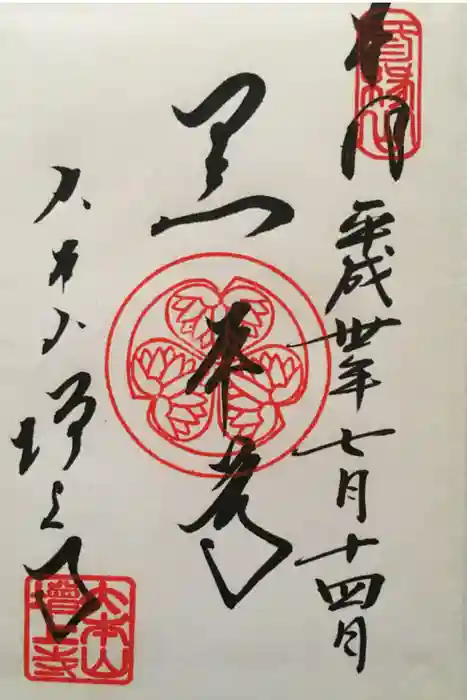 平成卅年七月十四日
黒本尊
大本山増上寺
大本山
增上寺